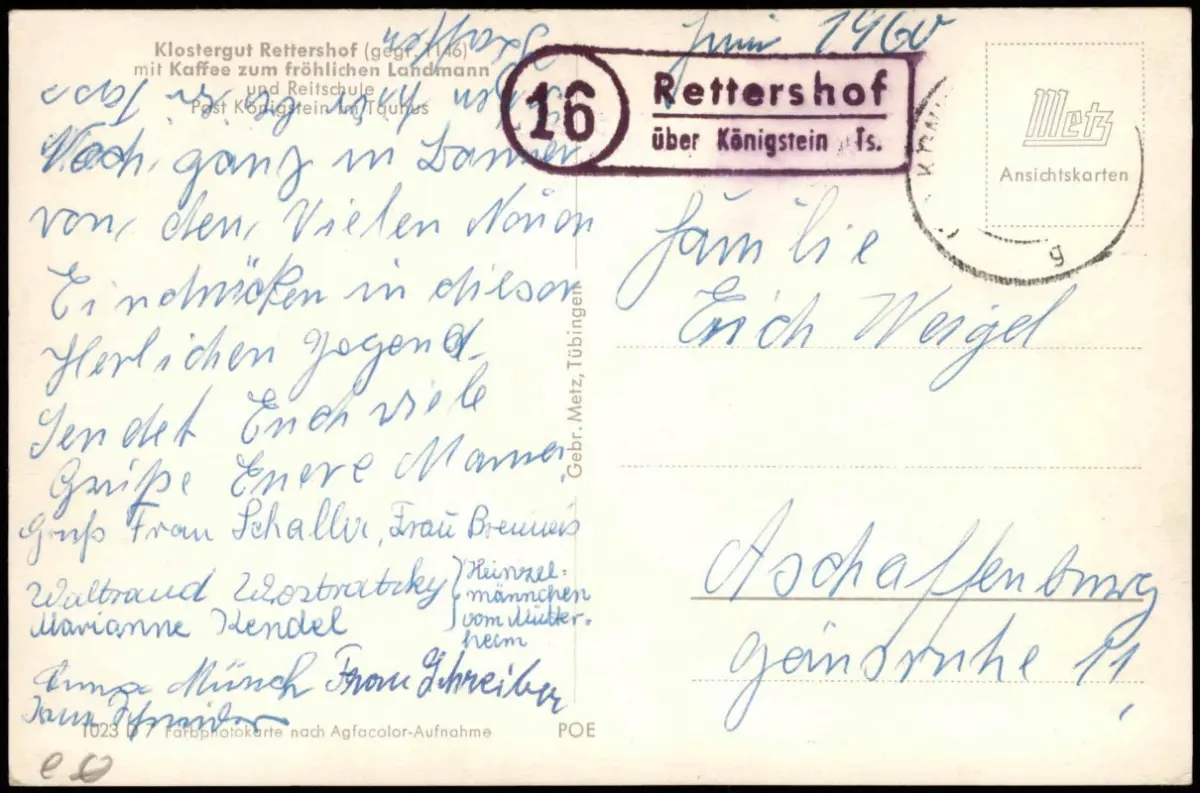 Juni 1960
Klostergut Rettershof (gegr. 1146)
mit Kaffee zum fröhlichen Landmann
und Reitschule
Post Königstein im Taunus
Noch, ganz in Bannen
von, den, Vielen Nouen
Eindrücken in diesen
Herlichen Gegend
Sendet Euch viele
Grüße Euere Mama.
Gruß Frau Schaller, Frau Brenneis
Waltraud Wostratzky
Marianne Kendel
Heinzel-
männchen
vom Mütter-
heim
Münch Frau Schreiber
1023 D 7 Farbphotokarte nach Agfacolor-Aufnahme
POE
Gebr. Metz, Tübingen
16
Rettershof
über Königstein Ts.
Metz
Ansichtskarten
g
Familie
Erich Weigel
Aschaffenburg
Gänsruhe 11